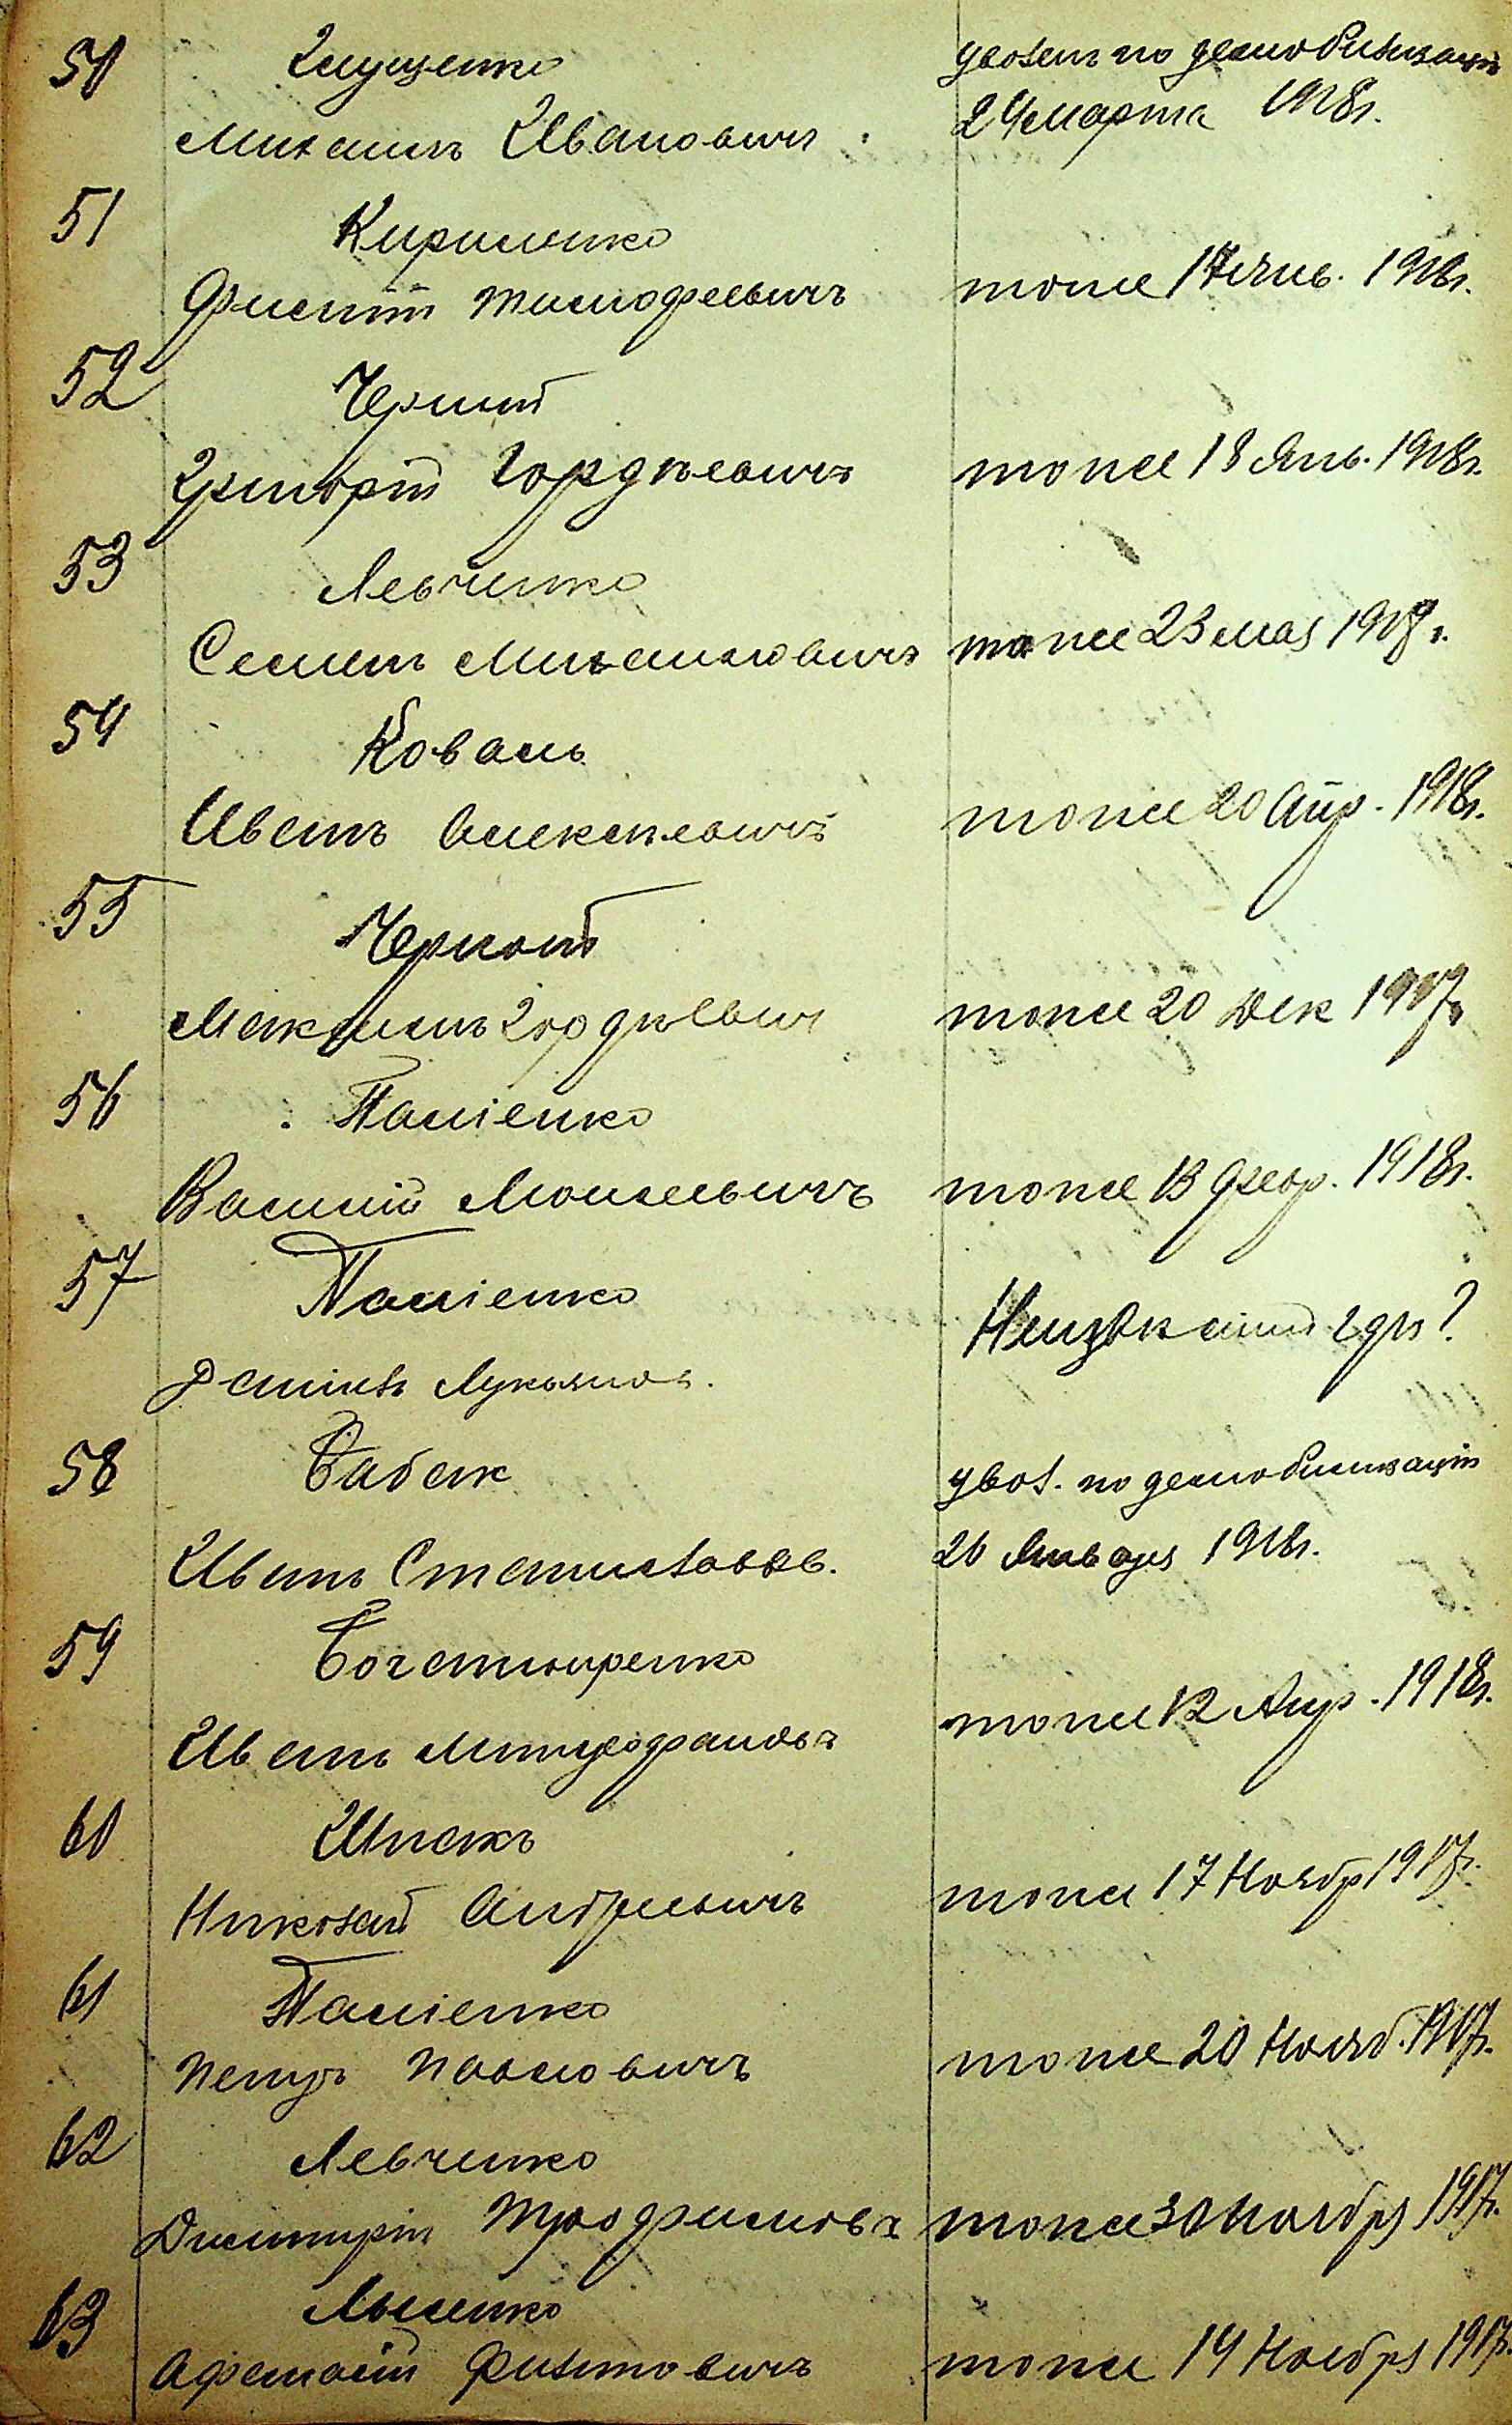 50 Глущенко уволен по демобилизаціи
Михаилъ Ивановичъ 24 марта 1918г.
51 Кириленко
Филиппъ Тимофеевичъ тоже 17 янв. 1918г.
52 Черный
Григорій Гордѣевичъ тоже 18 Янв. 1918г.
53 Левченко
Семенъ Михайловичъ тоже 23 мая 1918г.
54 Коваль
Иванъ Алексѣевичъ тоже 20 Апр. 1918г.
55 Черной
Максимъ Гордѣевич тоже 20 Дек 1917г
56 Паліенко
Василій Моисеевичъ тоже 13 Февр. 1918г.
57 Паліенко Неизвѣстно гдѣ?
Даніилъ Лукьянов.
58 Бабак увол. по демобилизаціи
Иванъ Станиславов. 26 Января 1918г.
59 Богатыренко
Иванъ Митрофановъ тоже 12 Апр. 1918г.
60 Шпакъ
Николай Андреевичъ тоже 17 Ноябр 1917г.
61 Паліенко
Петръ Павловичъ тоже 20 Нояб. 1917г.
62 Левченко
Димитрій Трофимовъ тоже 30 Ноября 1917г.
63 Лысенко
Афанасій Филиповичъ тоже 14 Ноября 1917г.